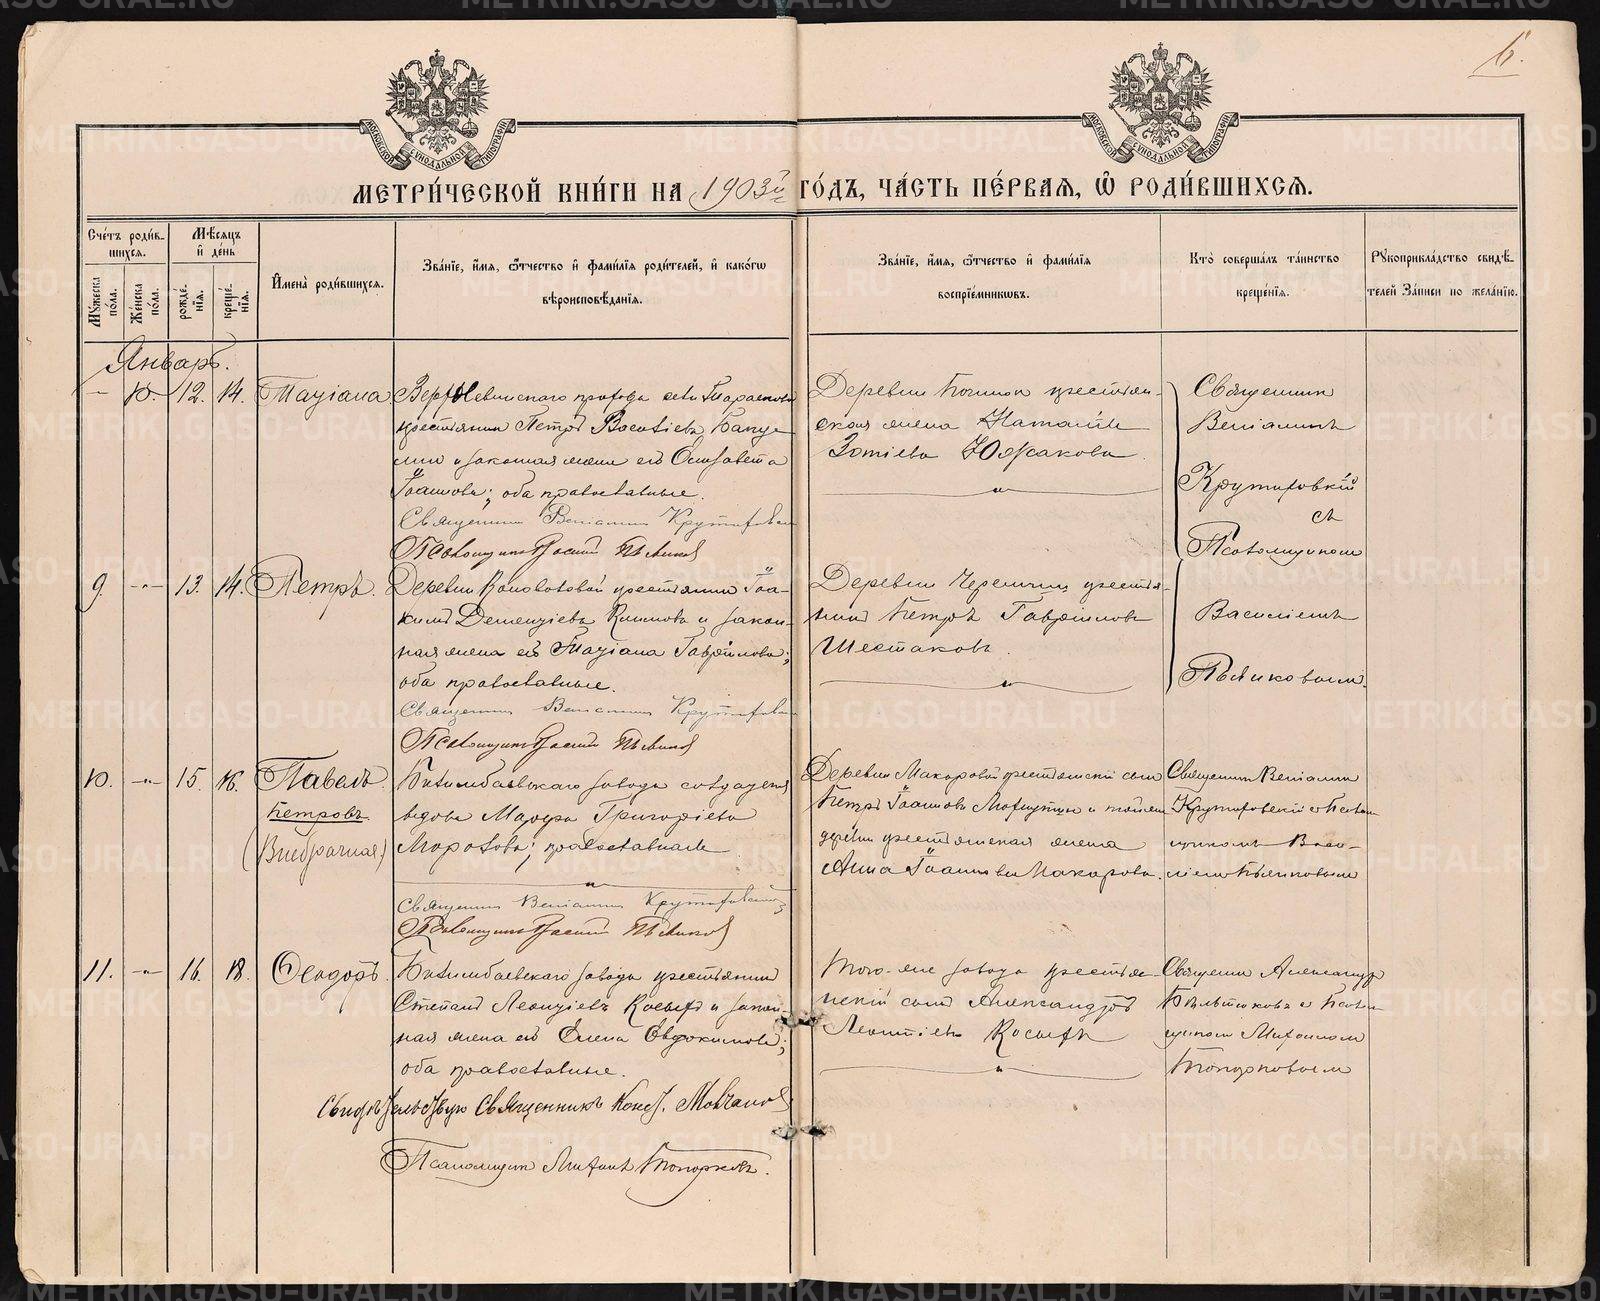 6.
МОСКОВСКОЙ СѴНОДАЛЬНОЙ ТИПОГРАФИИ
МОСКОВСКОЙ СѴНОДАЛЬНОЙ ТИПОГРАФИИ
МЕТРИ́ЧЕСКОЙ КНИ́ГИ НА 1903й ГО́ДЪ, ЧА́СТЬ ПЕ́РВАЯ, Ѡ РОДИ́ВШИХСЯ.
Сче́тъ роди́в-
шихся.
Мѣ́сяцъ
и де́нь
Му́жеска по́ла.
Же́нска по́ла.
рожде́нія.
креще́нія.
Имена̀ роди́вшихся.
Зва́ніе, и́мя, ѻ́тчество и фами́лія роди́телей, и како́гѡ
вѣроисповѣ́данія.
Зва́ніе, и́мя, ѻ́тчество и фами́лія
воспріе́мникѡвъ.
Кто̀ соверша́лъ та́инство
креще́нія.
Рꙋкоприкла́дство свидѣ́-
телей за́писи по жела́нію.
Январь.
- 10. 12. 14. Таціана
крестьянинъ Петръ Василіевъ
и законная жена его Елисавета
Іоаннова; оба православные.
Священникъ Веніаминъ Крутиховскій
Псаломщикъ Василій Пьянковъ
Деревни крестьян-
ская жена Наталія
Зотіева Южакова
Священникъ
Веніаминъ
Крутиховскій
съ
Псаломщикомъ
Василіемъ
Пьянковымъ.
9. -"- 13. 14. Петръ.
Деревни Коноваловой крестьянинъ Іоа-
кимъ Дементіевъ Климовъ и закон-
ная жена его Таціана Гавріилова;
оба православные.
Священникъ Веніаминъ Крутиховскій
Псаломщикъ Василій Пьянковъ
Деревни Черемши, крестья-
нинъ Петръ Гавріиловъ
Шестаковъ.
10. -"- 15. 16. Павелъ
Петровъ
(Внебрачная)
Билимбаевскаго завода солдатская
вдова Марфа Григоріева
Морозова; православная
Священникъ Веніаминъ Крутиховскій
Псаломщикъ Василій Пьянковъ
Деревни Макаровой крестьянскій сынъ
Петръ Іоанновъ и тойже
деревни крестьянская жена
Анна Іоаннова Макарова.
Священникъ Веніаминъ
Крутиховскій съ Псалом-
щикомъ Васи-
ліемъ Пьянковымъ
11. -"- 16. 18. Ѳеодоръ.
Билимбаевскаго завода крестьянинъ
Стефанъ Леонтіевъ Косыхъ и закон-
ная жена его Елена Евдокимова;
оба православные.
Свидѣтельствую Священникъ Конст. Молчановъ
Псаломщикъ Михаилъ Топорковъ.
Того-же завода крестьян-
скій сынъ Александръ
Леонтіевъ Косыхъ
Священникъ Александръ
Бѣльтюковъ съ Псалом-
щикомъ Михаиломъ
Топорковымъ
METRIKI.GASO-URAL.RU